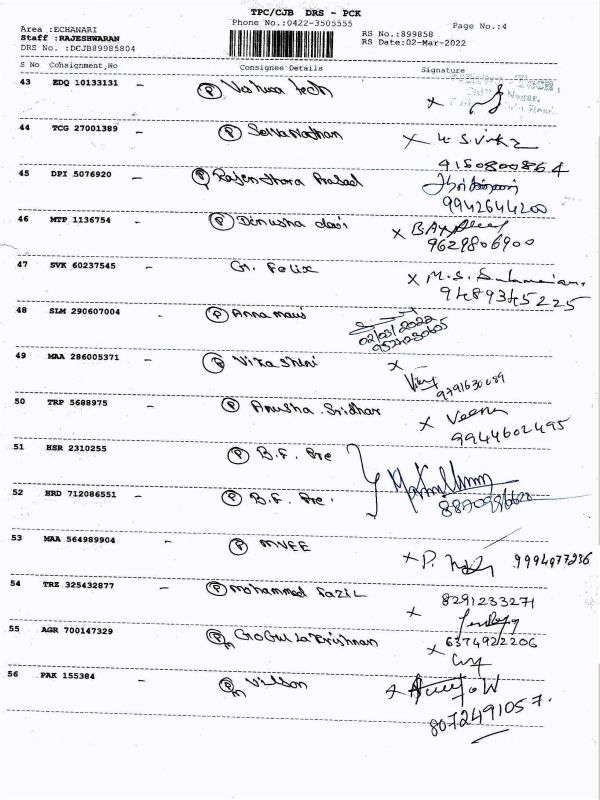 TPC/CJB DRS - PCK
Phone No.:0422-3505555
Page No.:4
Area :ECHANARI
Staff :RAJESHWARAN
DRS No. :DCJB89985804
RS No.:899858
RS Date:02-Mar-2022
S No Consignment,No Consignee Details Signature
43 EDQ 10133131 - (P) tech
44 TCG 27001389 - (P) Selvanathan
4150800864
45 DPI 5076920 - (P) Rajendhara Prasad
9942644200
46 MTP 1136754 - (P) Dinusha devi
9629806900
47 SVK 60237545 - G. Felix x M.S. Sulaiman.
9489345225
48 SLM 290607004 - (P) Anna
02/03/2022
49 MAA 286005371 - (P) Vikashini x
50 TRP 5688975 - (P) Anusha Sridhar x Veena
9944602495
51 HSR 2310255 (P) B.F. Pre
52 HRD 712086551 - (P) B.F. Pre.
53 MAA 564989904 - (P) MVEE x P. 9994077236
54 TRE 325432877 - (P) Mohammed Fazil 8291233271
x
55 AGR 700147329 (P) GoGul La Krishnan 6374922206
x
56 PAK 155384 - (P) Vilson x
8072491057.